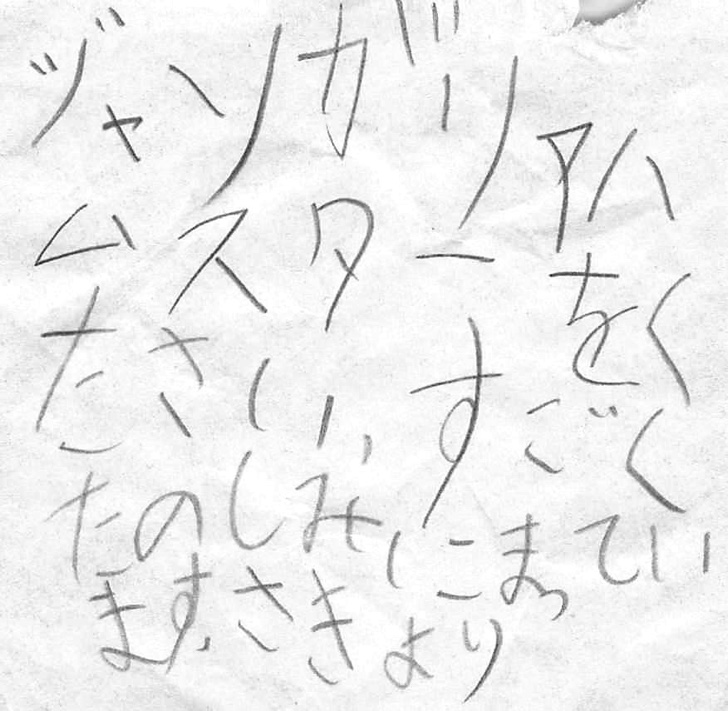 ヅャンガリアハ
ムスターをく
ださい、すごく
たのしみにまってい
ます、さきより